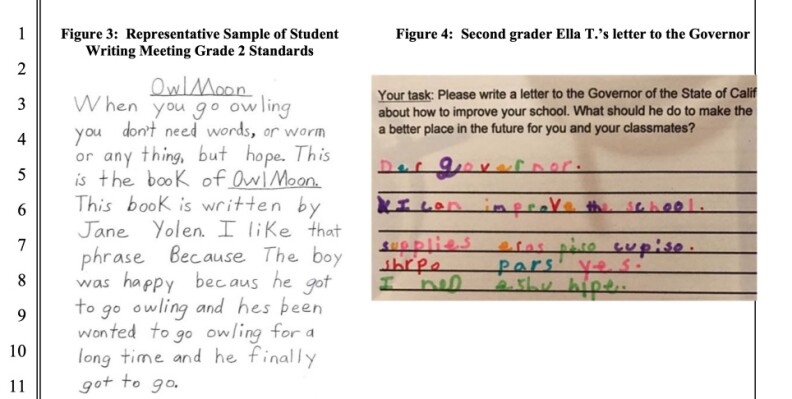 1
2
3
4
5
6
7
8
9
10
11
Figure 3: Representative Sample of Student
Writing Meeting Grade 2 Standards
Owl Moon
When you go owling
you don't need words, or worm
or any thing, but hope. This
is the book of Owl Moon.
This book is written by
Jane Yolen. I like that
phrase Because The boy
was happy becaus he got
to go owling and hes been
wonted to go owling for a
long time and he finally
got to go.
Figure 4: Second grader Ella T.'s letter to the Governor
Your task: Please write a letter to the Governor of the State of Calif
about how to improve your school. What should he do to make the
a better place in the future for you and your classmates?
Der governor.
I can improve the school.
supplies eras cupiso.
shrpo pars yes.
I ned hipe.